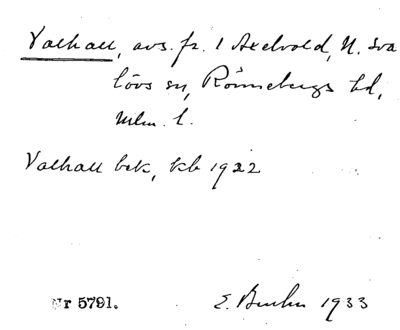 Valhall, avs. fr. 1 Axelvold, N. Sva
lövs sn, Rönnebergs hd,
Mlm. l.
Valhall bek, kb 1922
Nr 5791.
E. 1933